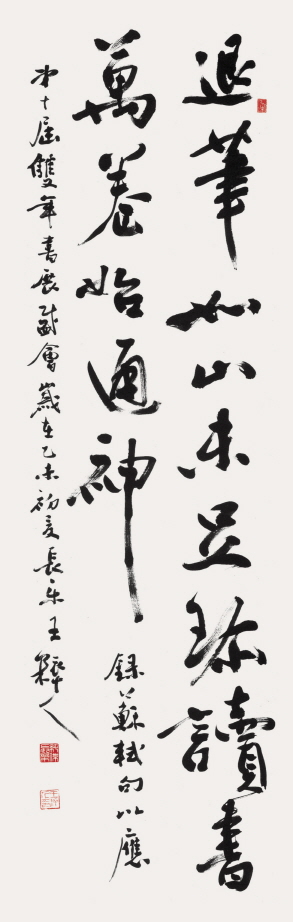 退筆如山未足珍讀書
萬卷始通神
錄蘇軾句以應
第十屆雙年書展盛會歲在乙未初夏長樂王
人